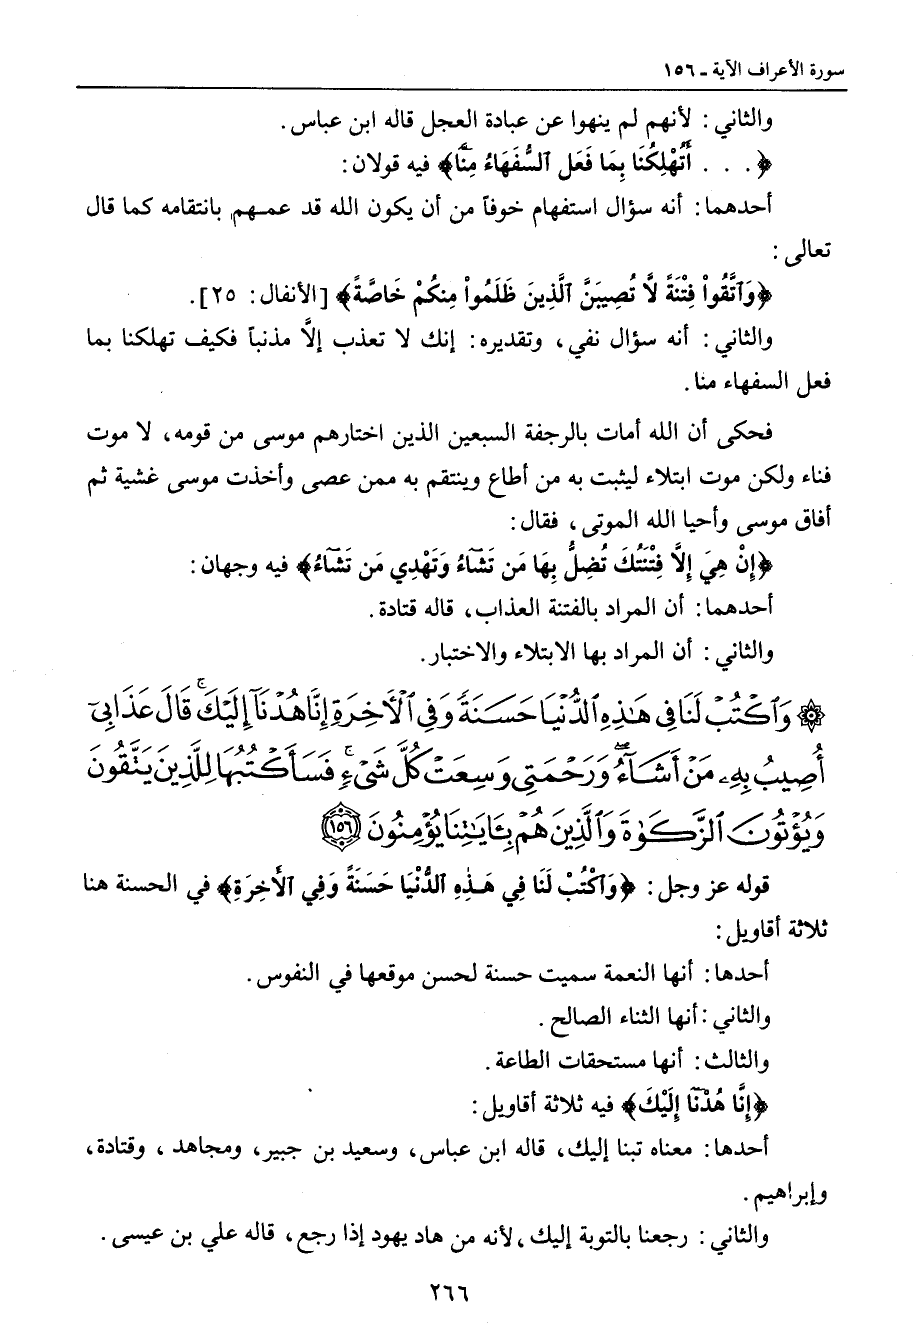 سورة الأعراف الآية ـ ١٥٦
والثاني : لأنهم لم ينهوا عن عبادة العجل قاله ابن عباس .
﴿ . . . أَتُهْلِكُنَا بِمَا فَعَلَ ٱلسُّفَهَاءُ مِنَّا﴾ فيه قولان :
أحدهما : أنه سؤال استفهام خوفاً من أن يكون الله قد عمـهم بانتقامه كما قال
تعالى :
﴿وَٱتَّقُواْ فِتْنَةً لَّا تُصِيبَنَّ ٱلَّذِينَ ظَلَمُواْ مِنكُمْ خَاصَّةً﴾ [الأنفال : ٢٥] .
والثاني : أنه سؤال نفي ، وتقديره : إنك لا تعذب إلاَّ مذنباً فكيف تهلكنا بما
فعل السفهاء منا .
فحكى أن الله أمات بالرجفة السبعين الذين اختارهم موسى من قومه ، لا موت
فناء ولكن موت ابتلاء ليثبت به من أطاع وينتقم به ممن عصى وأخذت موسى غشية ثم
أفاق موسى وأحيا الله الموتى ، فقال :
﴿إِنْ هِيَ إِلَّا فِتْنَتُكَ تُضِلُّ بِهَا مَن تَشَآءُ وَتَهْدِي مَن تَشَآءُ﴾ فيه وجهان :
أحدهما : أن المراد بالفتنة العذاب ، قاله قتادة .
والثاني : أن المراد بها الابتلاء والاختبار .
۞ وَٱكْتُبْ لَنَا فِى هَٰذِهِ ٱلدُّنْيَا حَسَنَةً وَفِى ٱلْأَخِرَةِ إِنَّا هُدْنَآ إِلَيْكَ ۚ قَالَ عَذَابِىٓ
أُصِيبُ بِهِۦ مَنْ أَشَآءُ ۖ وَرَحْمَتِى وَسِعَتْ كُلَّ شَىْءٍ ۚ فَسَأَكْتُبُهَا لِلَّذِينَ يَتَّقُونَ
وَيُؤْتُونَ ٱلزَّكَوٰةَ وَٱلَّذِينَ هُم بِـَٔايَٰتِنَا يُؤْمِنُونَ ١٥٦
قوله عز وجل : ﴿وَٱكْتُبْ لَنَا فِي هَـٰذِهِ ٱلدُّنْيَا حَسَنَةً وَفِي ٱلْأَخِرَةِ﴾ في الحسنة هنا
ثلاثة أقاويل :
أحدها : أنها النعمة سميت حسنة لحسن موقعها في النفوس .
والثاني : أنها الثناء الصالح .
والثالث : أنها مستحقات الطاعة .
﴿إِنَّا هُدْنَآ إِلَيْكَ﴾ فيه ثلاثة أقاويل :
أحدها : معناه تبنا إليك ، قاله ابن عباس ، وسعيد بن جبير ، ومجاهد ، وقتادة ،
وإبراهيم .
والثاني : رجعنا بالتوبة إليك ، لأنه من هاد يهود إذا رجع ، قاله علي بن عيسى .
٢٦٦